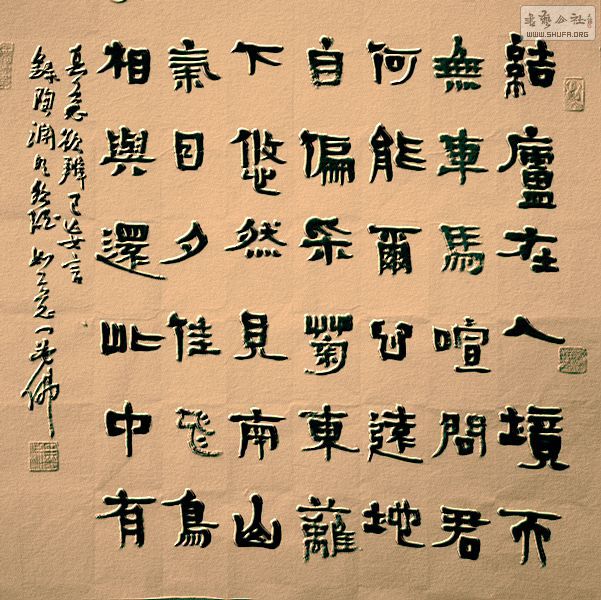 結廬在人境而
無車馬喧問君
何能爾心遠地
自偏采菊東籬
下悠然見南山
氣日夕佳飛鳥
相與還此中有
真意欲辨已忘言
錄陶淵明
書藝公社
WWW.SHUFA.ORG